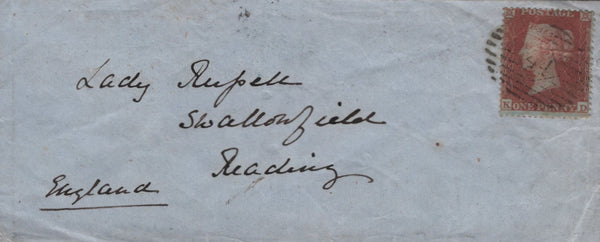 POSTAGE
ONE PENNY
K D
Lady Rufsell
Swallowfield
Reading
England